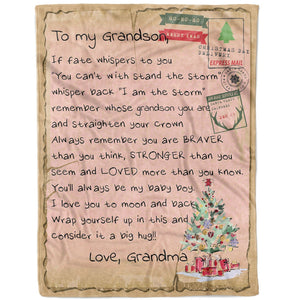 HO-HO-HO
To my Grandson,
CHRISTMAS DAY
DELIVERY
EXPRESS MAIL
If fate whispers to you
"You can't with stand the storm"
whisper back "I am the storm"
remember whose grandson you are
and straighten your crown
Always remember you are BRAVER
than you think, STRONGER than you
seem and LOVED more than you know.
You'll always be my baby boy.
I love you to moon and back
Wrap yourself up in this and
consider it a big hug!!
Love, Grandma